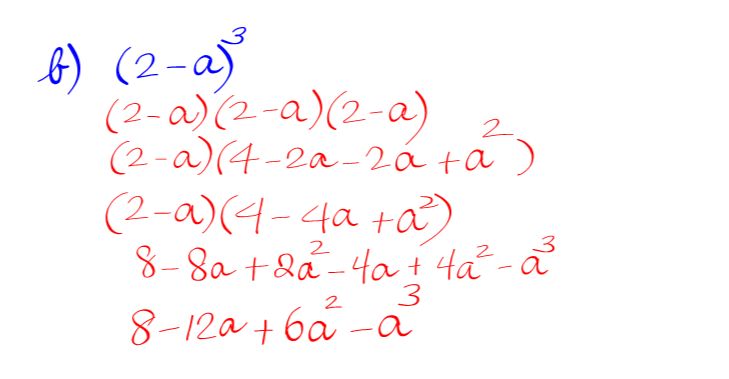 b) (2-a)³
(2-a)(2-a)(2-a)
(2-a)(4-2a-2a+a²)
(2-a)(4-4a+a²)
8-8a+2a²-4a+4a²-a³
8-12a+6a²-a³